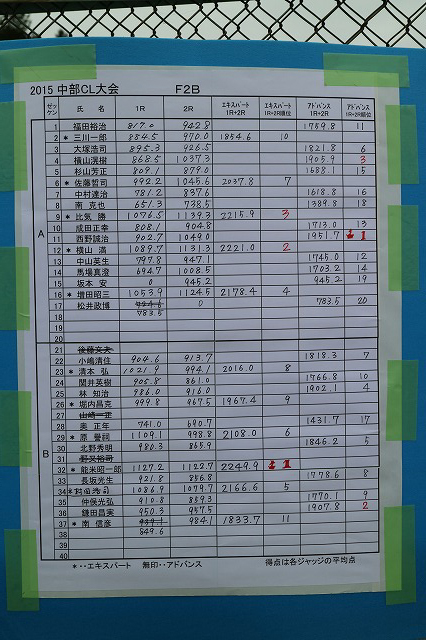 2015 中部CL大会 F2B
ゼッケン 氏 名 1R 2R エキスパート 1R+2R エキスパート 1R+2R順位 アドバンス 1R+2R アドバンス 1R+2R順位
A
1 福田裕治 817.0 942.8 1759.8 11
2 * 三川一郎 884.5 970.0 1854.6 10
3 大塚浩司 895.3 926.5 1821.8 6
4 横山滉樹 868.5 1037.3 1905.9 3
5 杉山芳正 809.1 879.0 1688.1 15
6 * 佐藤哲司 992.2 1045.6 2037.8 7
7 中村達治 781.2 837.6 1618.8 16
8 南 克也 651.3 738.5 1389.8 18
9 * 比気 勝 1076.5 1139.3 2215.9 3
10 成田正幸 808.1 904.8 1713.0 13
11 西野誠治 902.7 1049.0 1951.7 1
12 * 横山 満 1089.7 1131.3 2221.0 2
13 中山英生 797.8 947.1 1745.0 12
14 馬場真澄 694.7 1008.5 1703.2 14
15 坂本 安 0 945.2 945.2 19
16 * 増田昭三 1053.9 1124.5 2178.4 4
17 松井政博 0 783.5 20
18 783.5
19
20
B
21 後藤文夫
22 小嶋清住 904.6 913.7 1818.3 7
23 * 清本 弘 1021.9 994.1 2016.0 8
24 関井英樹 905.8 861.0 1766.8 10
25 林 知治 986.0 916.0 1902.1 4
26 * 堀内昌克 999.8 967.5 1967.4 9
27 山崎一正
28 奥 正年 741.0 690.7 1431.7 17
29 * 原 誉嗣 1109.1 998.8 2108.0 6
30 北野秀明 980.3 865.9 1846.2 5
31 野叉裕司
32 * 能米昭一郎 1127.2 1122.7 2249.9 1
33 長坂光生 921.8 856.8 1778.6 8
34 * 1086.9 1079.7 2166.6 5
35 仲保光弘 910.8 859.3 1770.1 9
36 鎌田昌実 950.3 957.5 1907.8 2
37 * 南 信彦 984.1 1833.7 11
38 849.6
39
40
*・・エキスパート 無印・・アドバンス 得点は各ジャッジの平均点